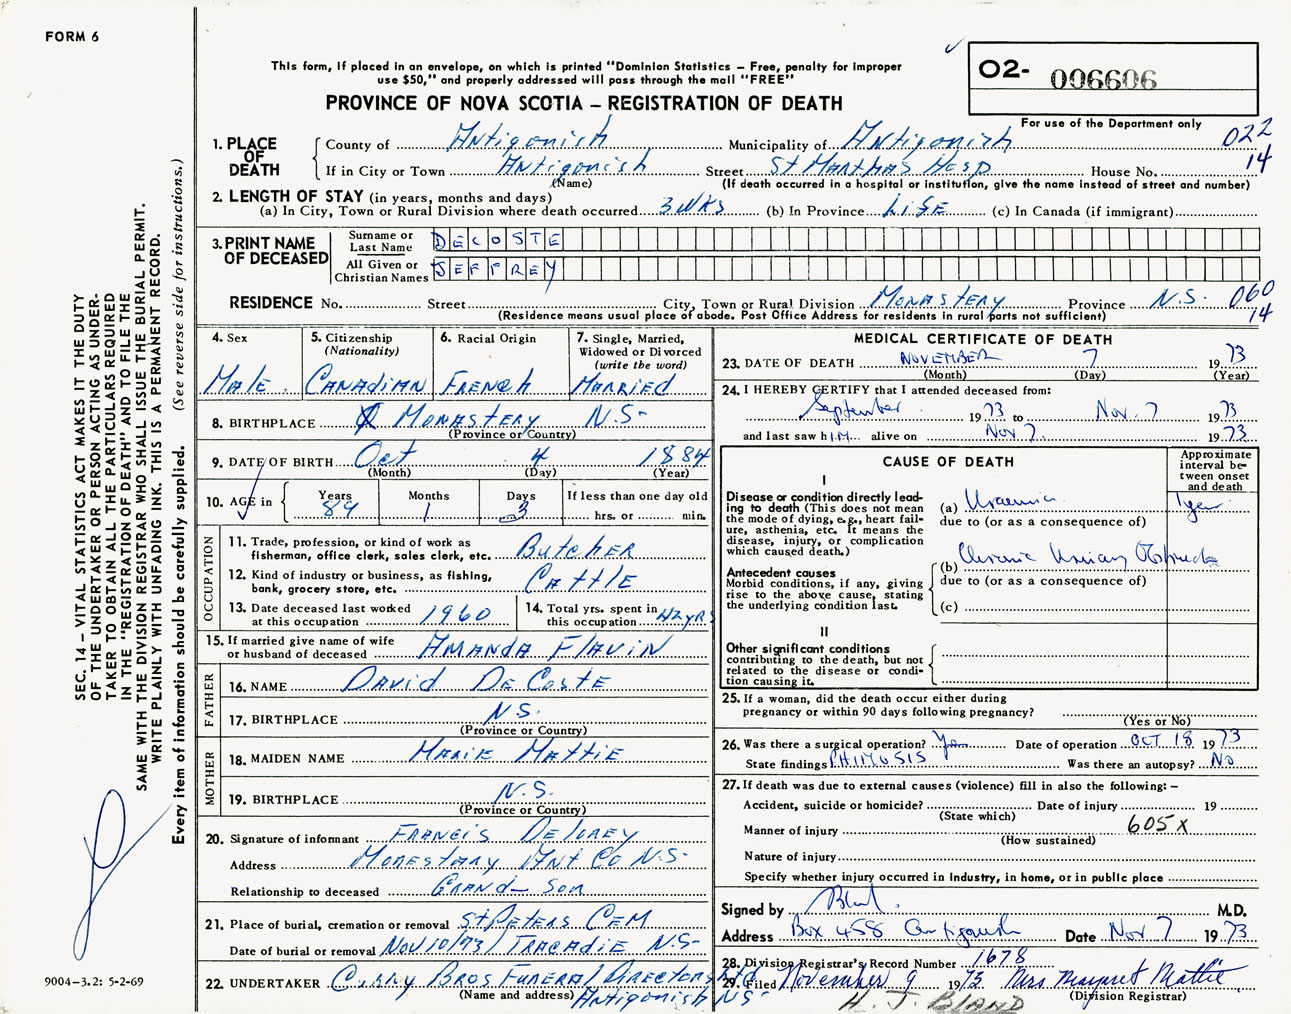 FORM 6
This form, if placed in an envelope, on which is printed "Dominion Statistics – Free, penalty for improper
use $50," and properly addressed will pass through the mail "FREE"
PROVINCE OF NOVA SCOTIA – REGISTRATION OF DEATH
O2- 006606
For use of the Department only
022
14
1. PLACE OF DEATH
County of Antigonish Municipality of Antigonish
If in City or Town Antigonish Street St Marthas Hosp House No.
(Name) (If death occurred in a hospital or institution, give the name instead of street and number)
2. LENGTH OF STAY (in years, months and days)
(a) In City, Town or Rural Division where death occurred 3 WKS (b) In Province LIFE (c) In Canada (if immigrant)
3. PRINT NAME OF DECEASED
Surname or Last Name DECOSTE
All Given or Christian Names JEFFREY
RESIDENCE No. Street City, Town or Rural Division Monastery Province N.S. 060
(Residence means usual place of abode. Post Office Address for residents in rural parts not sufficient) 14
4. Sex
Male
5. Citizenship
(Nationality)
Canadian
6. Racial Origin
French
7. Single, Married,
Widowed or Divorced
(write the word)
Married
8. BIRTHPLACE Monastery N.S-
(Province or Country)
9. DATE OF BIRTH Oct 4 1884
(Month) (Day) (Year)
10. AGE in
Years Months Days If less than one day old
89 1 3 hrs. or min.
OCCUPATION
11. Trade, profession, or kind of work as
fisherman, office clerk, sales clerk, etc. Butcher
12. Kind of industry or business, as fishing,
bank, grocery store, etc. Cattle
13. Date deceased last worked
at this occupation 1960
14. Total yrs. spent in
this occupation 42 yrs
15. If married give name of wife
or husband of deceased Amanda Flavin
FATHER
16. NAME David DeCoste
17. BIRTHPLACE N.S.
(Province or Country)
MOTHER
18. MAIDEN NAME Marie Mattie
19. BIRTHPLACE N.S.
(Province or Country)
20. Signature of informant Francis Delorey
Address Monestary Ant Co N.S-
Relationship to deceased Grand-Son
21. Place of burial, cremation or removal St Peters Cem
Date of burial or removal Nov 10/73/ Tracadie N.S-
22. UNDERTAKER Curry Bros Funeral Directors Ltd
(Name and address) Antigonish NS-
MEDICAL CERTIFICATE OF DEATH
23. DATE OF DEATH NOVEMBER 7 1973
(Month) (Day) (Year)
24. I HEREBY CERTIFY that I attended deceased from:
September 1973 to Nov. 7 1973
and last saw him alive on Nov 7. 1973
CAUSE OF DEATH
Approximate
interval be-
tween onset
and death
I
Disease or condition directly lead-
ing to death (This does not mean
the mode of dying, e.g., heart fail-
ure, asthenia, etc. It means the
disease, injury, or complication
which caused death.)
(a) Uraemia 1 year
due to (or as a consequence of)
Antecedent causes
Morbid conditions, if any, giving
rise to the above cause, stating
the underlying condition last.
(b) Chronic Urinary
due to (or as a consequence of)
(c)
II
Other significant conditions
contributing to the death, but not
related to the disease or condi-
tion causing it.
25. If a woman, did the death occur either during
pregnancy or within 90 days following pregnancy?
(Yes or No)
26. Was there a surgical operation? Yes Date of operation OCT 18 1973
State findings PHIMOSIS Was there an autopsy? No
27. If death was due to external causes (violence) fill in also the following: –
Accident, suicide or homicide? Date of injury 19
(State which)
Manner of injury 605X
(How sustained)
Nature of injury
Specify whether injury occurred in industry, in home, or in public place
Signed by Bland. M.D.
Address Box 458 Antigonish Date Nov 7 1973
28. Division Registrar's Record Number 1678
29. Filed November 9 1973 Mrs. Margaret Mattie
(Division Registrar)
H. J. BLAND
SEC. 14 – VITAL STATISTICS ACT MAKES IT THE DUTY
OF THE UNDERTAKER OR PERSON ACTING AS UNDER-
TAKER TO OBTAIN ALL THE PARTICULARS REQUIRED
IN THE "REGISTRATION OF DEATH" AND TO FILE THE
SAME WITH THE DIVISION REGISTRAR WHO SHALL ISSUE THE BURIAL PERMIT.
WRITE PLAINLY WITH UNFADING INK. THIS IS A PERMANENT RECORD.
Every item of information should be carefully supplied. (See reverse side for instructions.)
9004–3.2: 5-2-69